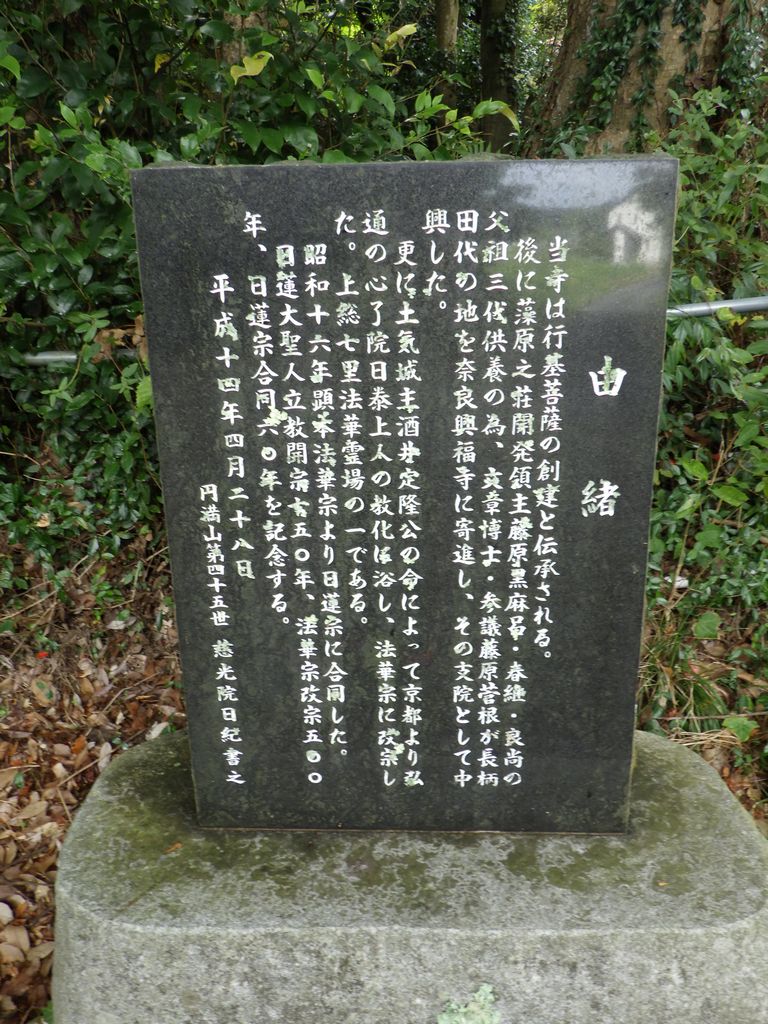 由緒
当寺は行基菩薩の創建と伝承される。
後に藻原之荘開発領主藤原黒麻呂・春継・良尚の
父祖三代供養の為、文章博士・参議藤原菅根が長柄
田代の地を奈良興福寺に寄進し、その支院として中
興した。
更に土気城主酒井定隆公の命によって京都より弘
通の心了院日泰上人の教化に浴し、法華宗に改宗し
た。上総七里法華霊場の一である。
昭和十六年顕本法華宗より日蓮宗に合同した。
日蓮大聖人立教開宗七五〇年、法華宗改宗五〇〇
年、日蓮宗合同六〇年を記念する。
平成十四年四月二十八日
円満山第四十五世 慈光院日紀書之